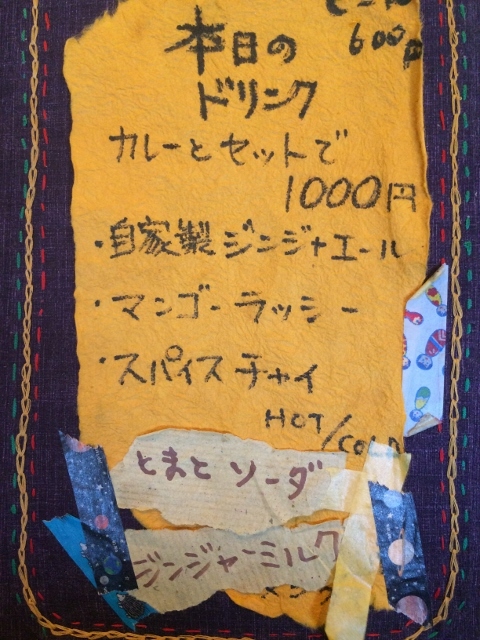 ビール
600円
本日の
ドリンク
カレーとセットで
1000円
・自家製ジンジャエール
・マンゴーラッシー
・スパイスチャイ
HOT/COLD
とまとソーダ
ジンジャーミルク